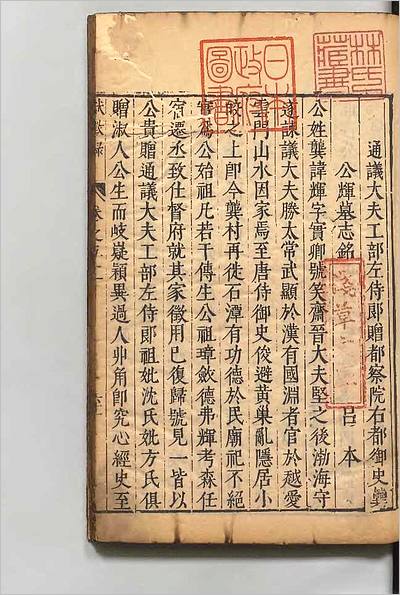 林氏藏書
日本政府圖書
淺草文庫
通議大夫工部左侍郎贈都察院右都御史龔
公輝墓志銘
呂本
公姓龔諱輝字實卿號笑齋晉大夫堅之後渤海守
遂諫議大夫勝太常武顯於漢有國淵者官於越愛
雲門山水因家焉至唐侍御史俊避黃巢亂隱居小
之上卽今龔村再徙石潭有功德於民廟祀不絕
寔爲公始祖凡若干傳生公祖璋斂德弗輝考森任
宿遷丞致仕督府就其家徵用已復歸號見一皆以
公貴贈通議大夫工部左侍郎祖妣沈氏妣方氏俱
贈淑人公生而岐嶷穎異過人丱角卽究心經史至
獻徵錄
卷之